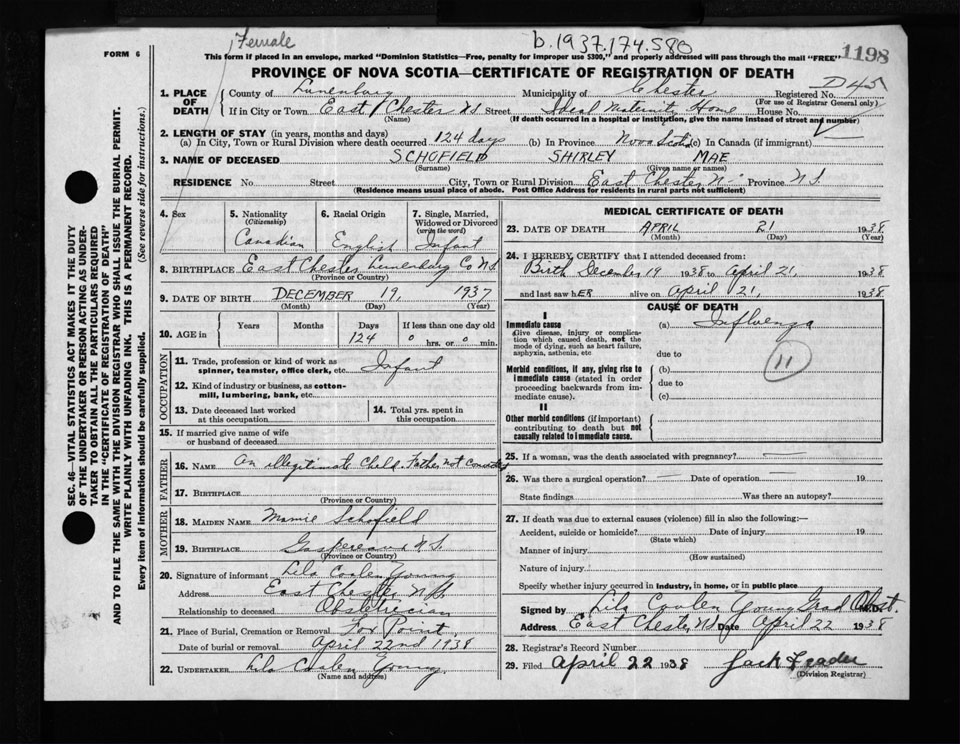 Female
b.1937.174.580
1198
FORM 6
This form if placed in an envelope, marked "Dominion Statistics—Free, penalty for improper use $300," and properly addressed will pass through the mail "FREE"
PROVINCE OF NOVA SCOTIA—CERTIFICATE OF REGISTRATION OF DEATH
1. PLACE OF DEATH County of Lunenburg Municipality of Chester Registered No. D45
(For use of Registrar General only)
If in City or Town East Chester NS Street Ideal Maternity Home House No.
(Name) (If death occurred in a hospital or institution, give the name instead of street and number)
2. LENGTH OF STAY (in years, months and days)
(a) In City, Town or Rural Division where death occurred 124 days (b) In Province Nova Scotia (c) In Canada (if immigrant)
3. NAME OF DECEASED SCHOFIELD SHIRLEY MAE
(Surname) (Given name or names)
RESIDENCE No Street City, Town or Rural Division East Chester Province N.S.
(Residence means usual place of abode. Post Office Address for residents in rural parts not sufficient)
4. Sex
5. Nationality (Citizenship) Canadian
6. Racial Origin English
7. Single, Married, Widowed or Divorced (write the word) Infant
8. BIRTHPLACE East Chester Lunenburg Co N.S.
(Province or Country)
9. DATE OF BIRTH DECEMBER 19, 1937
(Month) (Day) (Year)
10. AGE in Years Months Days If less than one day old
124 0 hrs. or 0 min.
OCCUPATION
11. Trade, profession or kind of work as spinner, teamster, office clerk, etc. Infant
12. Kind of industry or business, as cotton-mill, lumbering, bank, etc.
13. Date deceased last worked at this occupation
14. Total yrs. spent in this occupation
15. If married give name of wife or husband of deceased
FATHER
16. NAME An illegitimate Child. Father not
17. BIRTHPLACE
(Province or Country)
MOTHER
18. MAIDEN NAME Mamie Schofield
19. BIRTHPLACE Gaspereau N.S.
(Province or Country)
20. Signature of informant Lila Coolen Young
Address East Chester N.S.
Relationship to deceased Obstetrician
21. Place of Burial, Cremation or Removal Fox Point
Date of burial or removal April 22nd 1938
22. UNDERTAKER Lila Coolen Young
(Name and address)
MEDICAL CERTIFICATE OF DEATH
23. DATE OF DEATH APRIL 21 1938
(Month) (Day) (Year)
24. I HEREBY, CERTIFY that I attended deceased from:
Birth December 19 1938 to April 21, 1938
and last saw hER alive on April 21, 1938
CAUSE OF DEATH
I
Immediate cause
Give disease, injury or complication which caused death, not the mode of dying, such as heart failure, asphyxia, asthenia, etc
(a) Influenza
due to
11
Morbid conditions, if any, giving rise to immediate cause (stated in order proceeding backwards from immediate cause).
(b)
due to
(c)
II
Other morbid conditions (if important) contributing to death but not causally related to immediate cause.
25. If a woman, was the death associated with pregnancy?
26. Was there a surgical operation? Date of operation 19
State findings Was there an autopsy?
27. If death was due to external causes (violence) fill in also the following:—
Accident, suicide or homicide? Date of injury 19
(State which)
Manner of injury
(How sustained)
Nature of injury
Specify whether injury occurred in industry, in home, or in public place
Signed by Lila Coolen Young Grad Obst. M.D.
Address East Chester NS Date April 22 1938
28. Registrar's Record Number
29. Filed April 22 1938 Jack
(Division Registrar)
SEC. 46—VITAL STATISTICS ACT MAKES IT THE DUTY
OF THE UNDERTAKER OR PERSON ACTING AS UNDER-
TAKER TO OBTAIN ALL THE PARTICULARS REQUIRED
IN THE "CERTIFICATE OF REGISTRATION OF DEATH"
AND TO FILE THE SAME WITH THE DIVISION REGISTRAR WHO SHALL ISSUE THE BURIAL PERMIT.
WRITE PLAINLY WITH UNFADING INK. THIS IS A PERMANENT RECORD.
Every item of information should be carefully supplied. (See reverse side for instructions.)